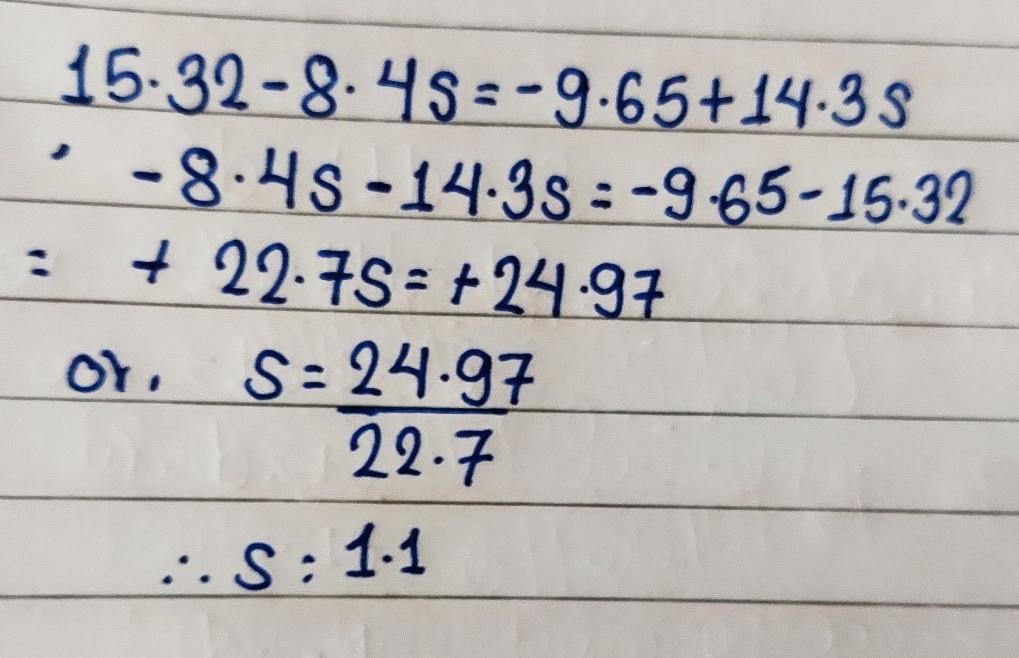 15·32-8·4s=-9·65+14·3s
' -8·4s-14·3s=-9·65-15·32
= + 22·7s=+24·97
or. s=24·97
22·7
∴ s: 1·1